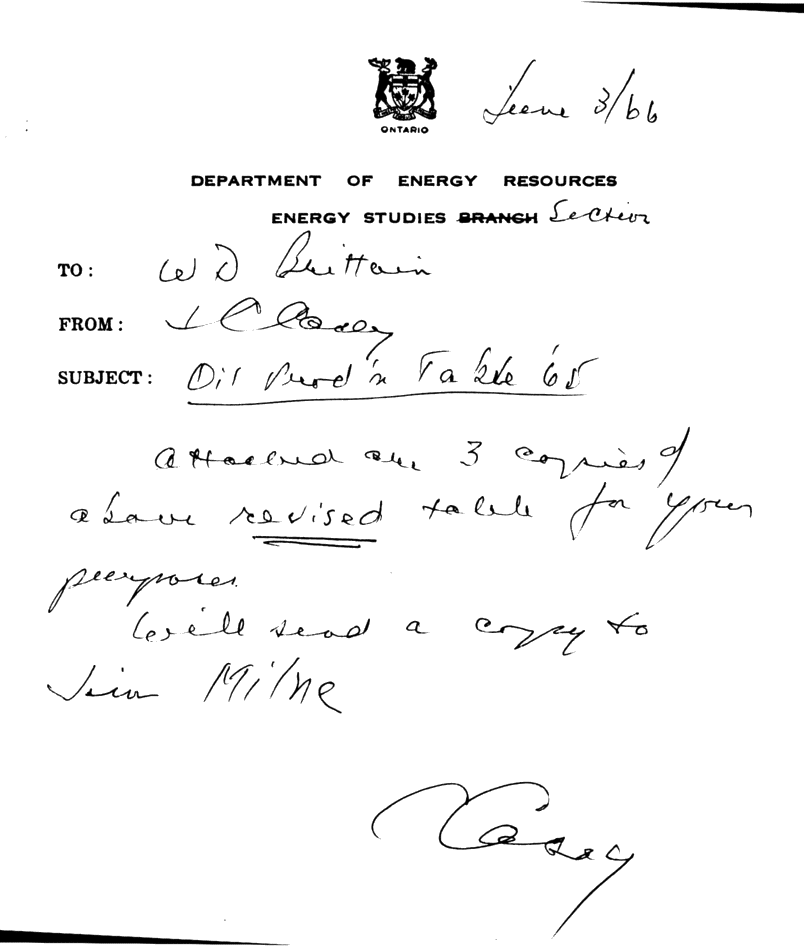 ONTARIO
June 3/66
DEPARTMENT OF ENERGY RESOURCES
ENERGY STUDIES BRANCH Section
TO: W D Brittain
FROM: J C Casey
SUBJECT: Oil Prod'n Table '65
Attached are 3 copies of
above revised table for your
purposes.
Will send a copy to
Jim Milne
Casey